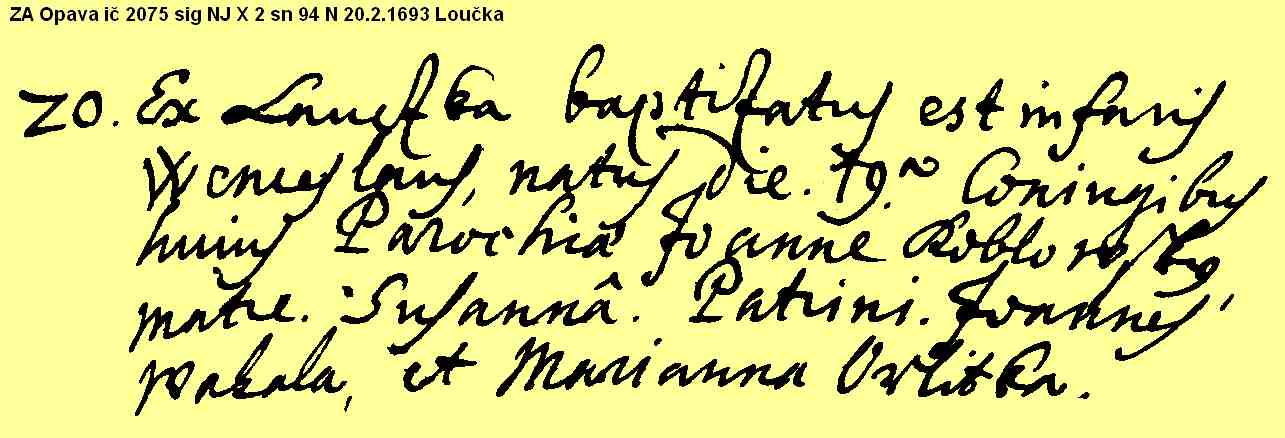 ZA Opava ič 2075 sig NJ X 2 sn 94 N 20.2.1693 Loučka
20. Ex Lauczka baptizatus est infans
Wenceslaus, natus die. 19.a Coniugibus
huius Parochiæ Joanne Koblowsky
matre. Susannâ. Patrini. Joannes,
Wakala, et Marianna Orlitka.